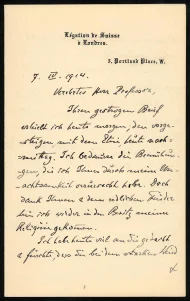 Légation de Suisse
à Londres.
5, Portland Place, W.
7. IV. 1914.
Verehrter Herr Professor,
Ihren gestrigen Brief
erhielt ich heute morgen, den vorge-
strigen mit dem Etui heute nach-
mittag. Ich bedauere die Bemühun-
gen, die ich Ihnen durch meine Un-
achtsamkeit verursacht habe. Doch
dank Ihnen & dem redlichen Finder
bin ich wieder in den Besitz meiner
gekommen.
Ich habe heute viel an Sie gedacht
& fürchte, dass Sie bei dem starken Wind